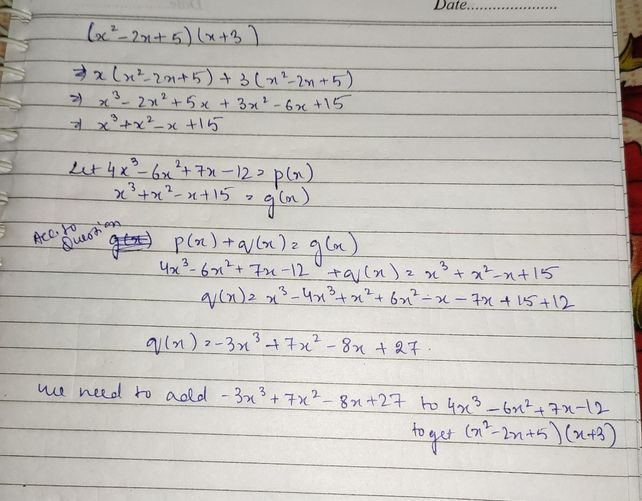 Date......................
(x²-2x+5)(x+3)
⇒ x(x²-2x+5) + 3(x²-2x+5)
⇒ x³-2x²+5x + 3x²-6x+15
⇒ x³+x²-x+15
Let 4x³-6x²+7x-12 = p(x)
x³+x²-x+15 = g(x)
Acc. to Question p(x)+q(x) = g(x)
4x³-6x²+7x-12 +q(x) = x³+x²-x+15
q(x) = x³-4x³+x²+6x²-x-7x+15+12
q(x) = -3x³+7x²-8x+27.
we need to add -3x³+7x²-8x+27 to 4x³-6x²+7x-12
to get (x²-2x+5)(x+3)